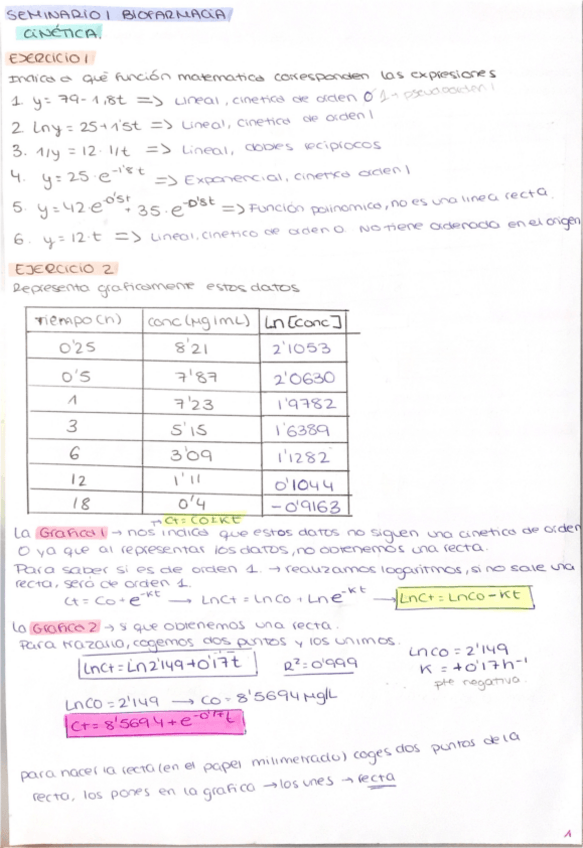 SEMINARIO 1 BIOFARMACIA
CINÉTICA.
EJERCICIO 1
Indica a qué función matematica corresponden las expresiones
1 y = 79 - 1,8t => Lineal, cinetica de orden 0 1 + pseudoorden 1
2 Lny = 25 + 1'5t => Lineal, cinetica de orden 1
3. 1/y = 12 · 1/t => Lineal, dobles reciprocos
4. y = 25 · e^-1'8t => Exponencial, cinetica orden 1
5. y = 42 · e^-0'5t + 35 · e^-0'8t => Función polinomica, no es una linea recta.
6. y = 12 · t => Lineal, cinetica de orden 0. No tiene ordenada en el origen
EJERCICIO 2
Representa graficamente estos datos
Tiempo (h) conc (μg/mL) Ln [conc]
0'25 8'21 2'1053
0'5 7'87 2'0630
1 7'23 1'9782
3 5'15 1'6389
6 3'09 1'1282
12 1'11 0'1044
18 0'4 -0'9163
Ct = C0 ± Kt
La Grafica 1 → nos indica que estos datos no siguen una cinetica de orden
0 ya que al representar los datos, no obtenemos una recta.
Para saber si es de orden 1. → realizamos logaritmos, si no sale una
recta, será de orden 1.
Ct = C0 · e^-Kt → LnCt = LnC0 + Lne^-Kt → LnCt = LnC0 - Kt
La Grafica 2 → si que obtenemos una recta.
Para trazarlo, cogemos dos puntos y los unimos.
LnC0 = 2'149
LnCt = Ln2'149 + 0'17t R² = 0'999
K = +0'17h⁻¹
pte negativa.
LnC0 = 2'149 → C0 = 8'5694 μg/L
Ct = 8'5694 + e^-0'17t
para hacer la recta (en el papel milimetrado) coges dos puntos de la
recta, los pones en la grafica → los unes → recta
1